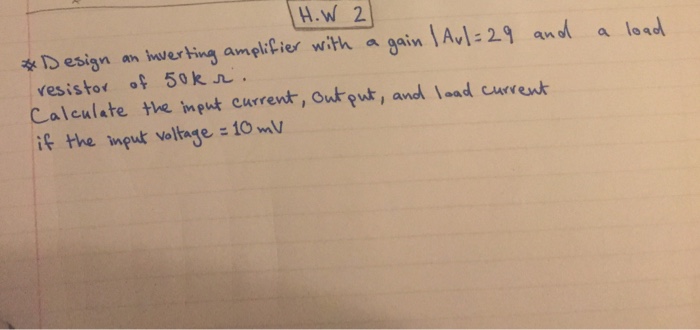 H.W 2
* Design an inverting amplifier with a gain |Av|=29 and a load
resistor of 50k Ω.
Calculate the input current, output, and load current
if the input voltage = 10 mV